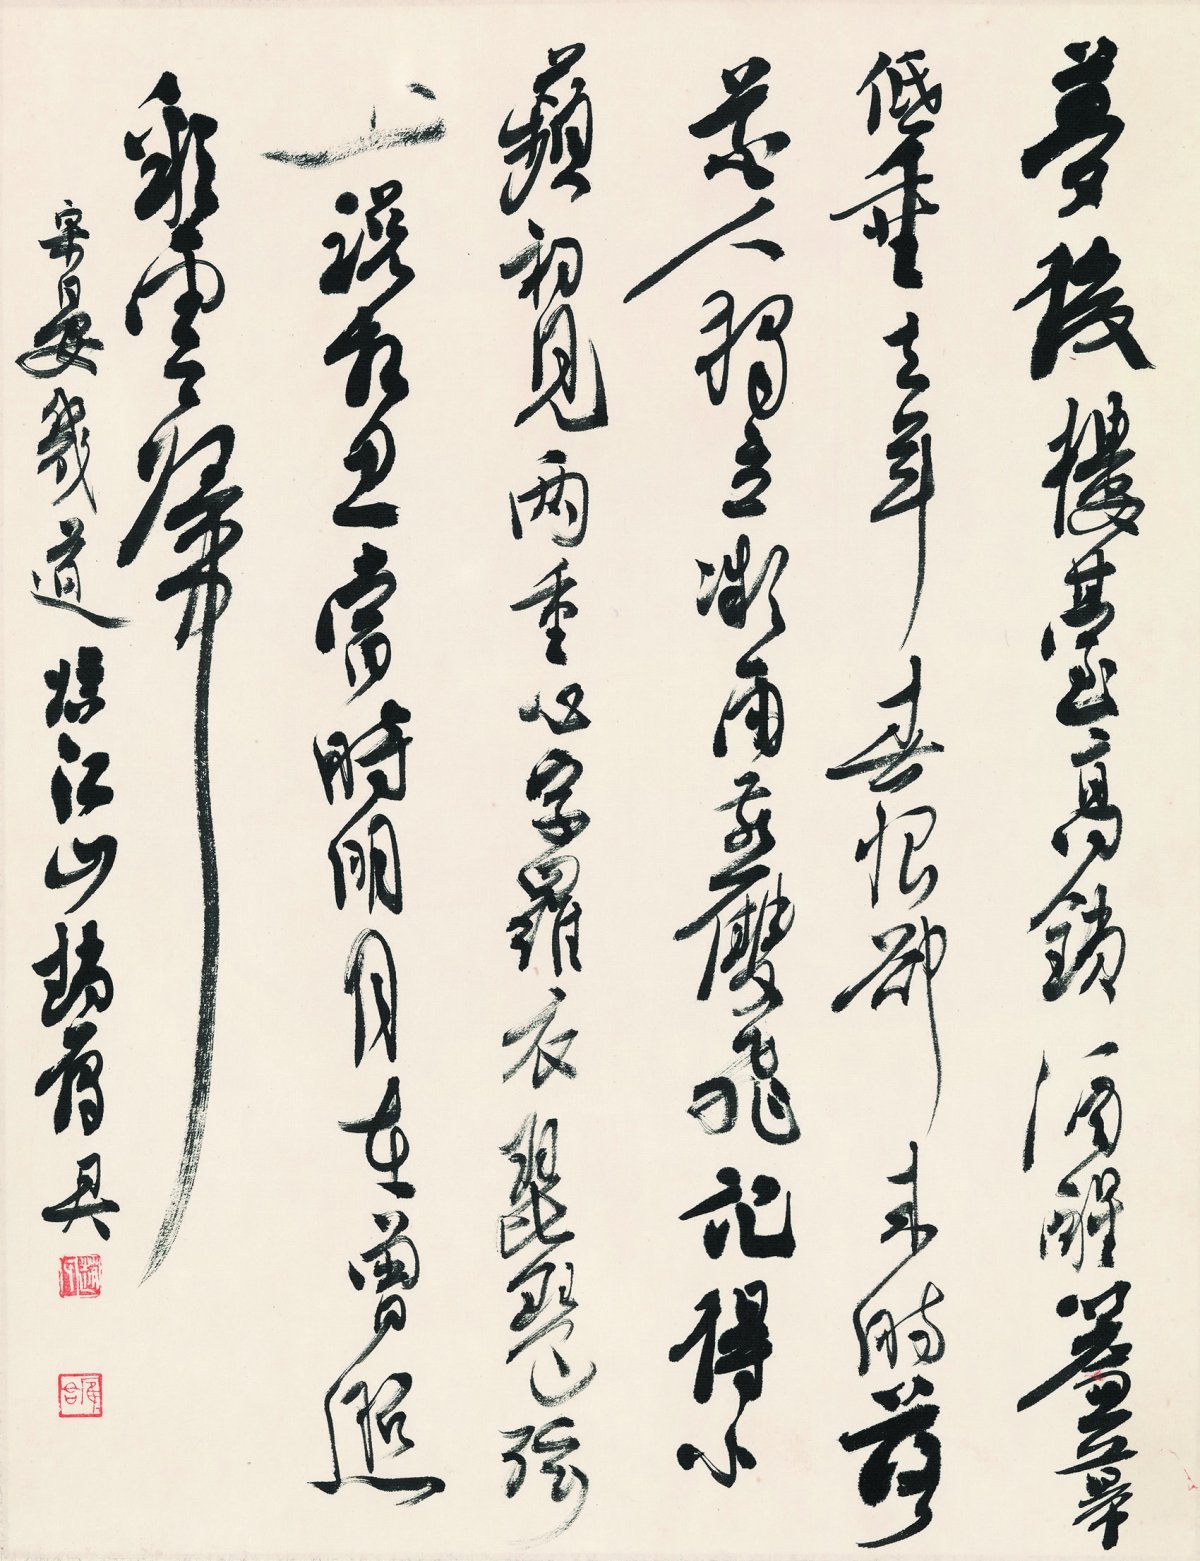 夢後樓臺高鎖酒醒簾幕
低垂去年春恨卻來時落
花人獨立微雨燕雙飛記得小
蘋初見两重心字羅衣琵琶弦
上說相思當時明月在曾照
彩雲歸
宋晏幾道臨江仙